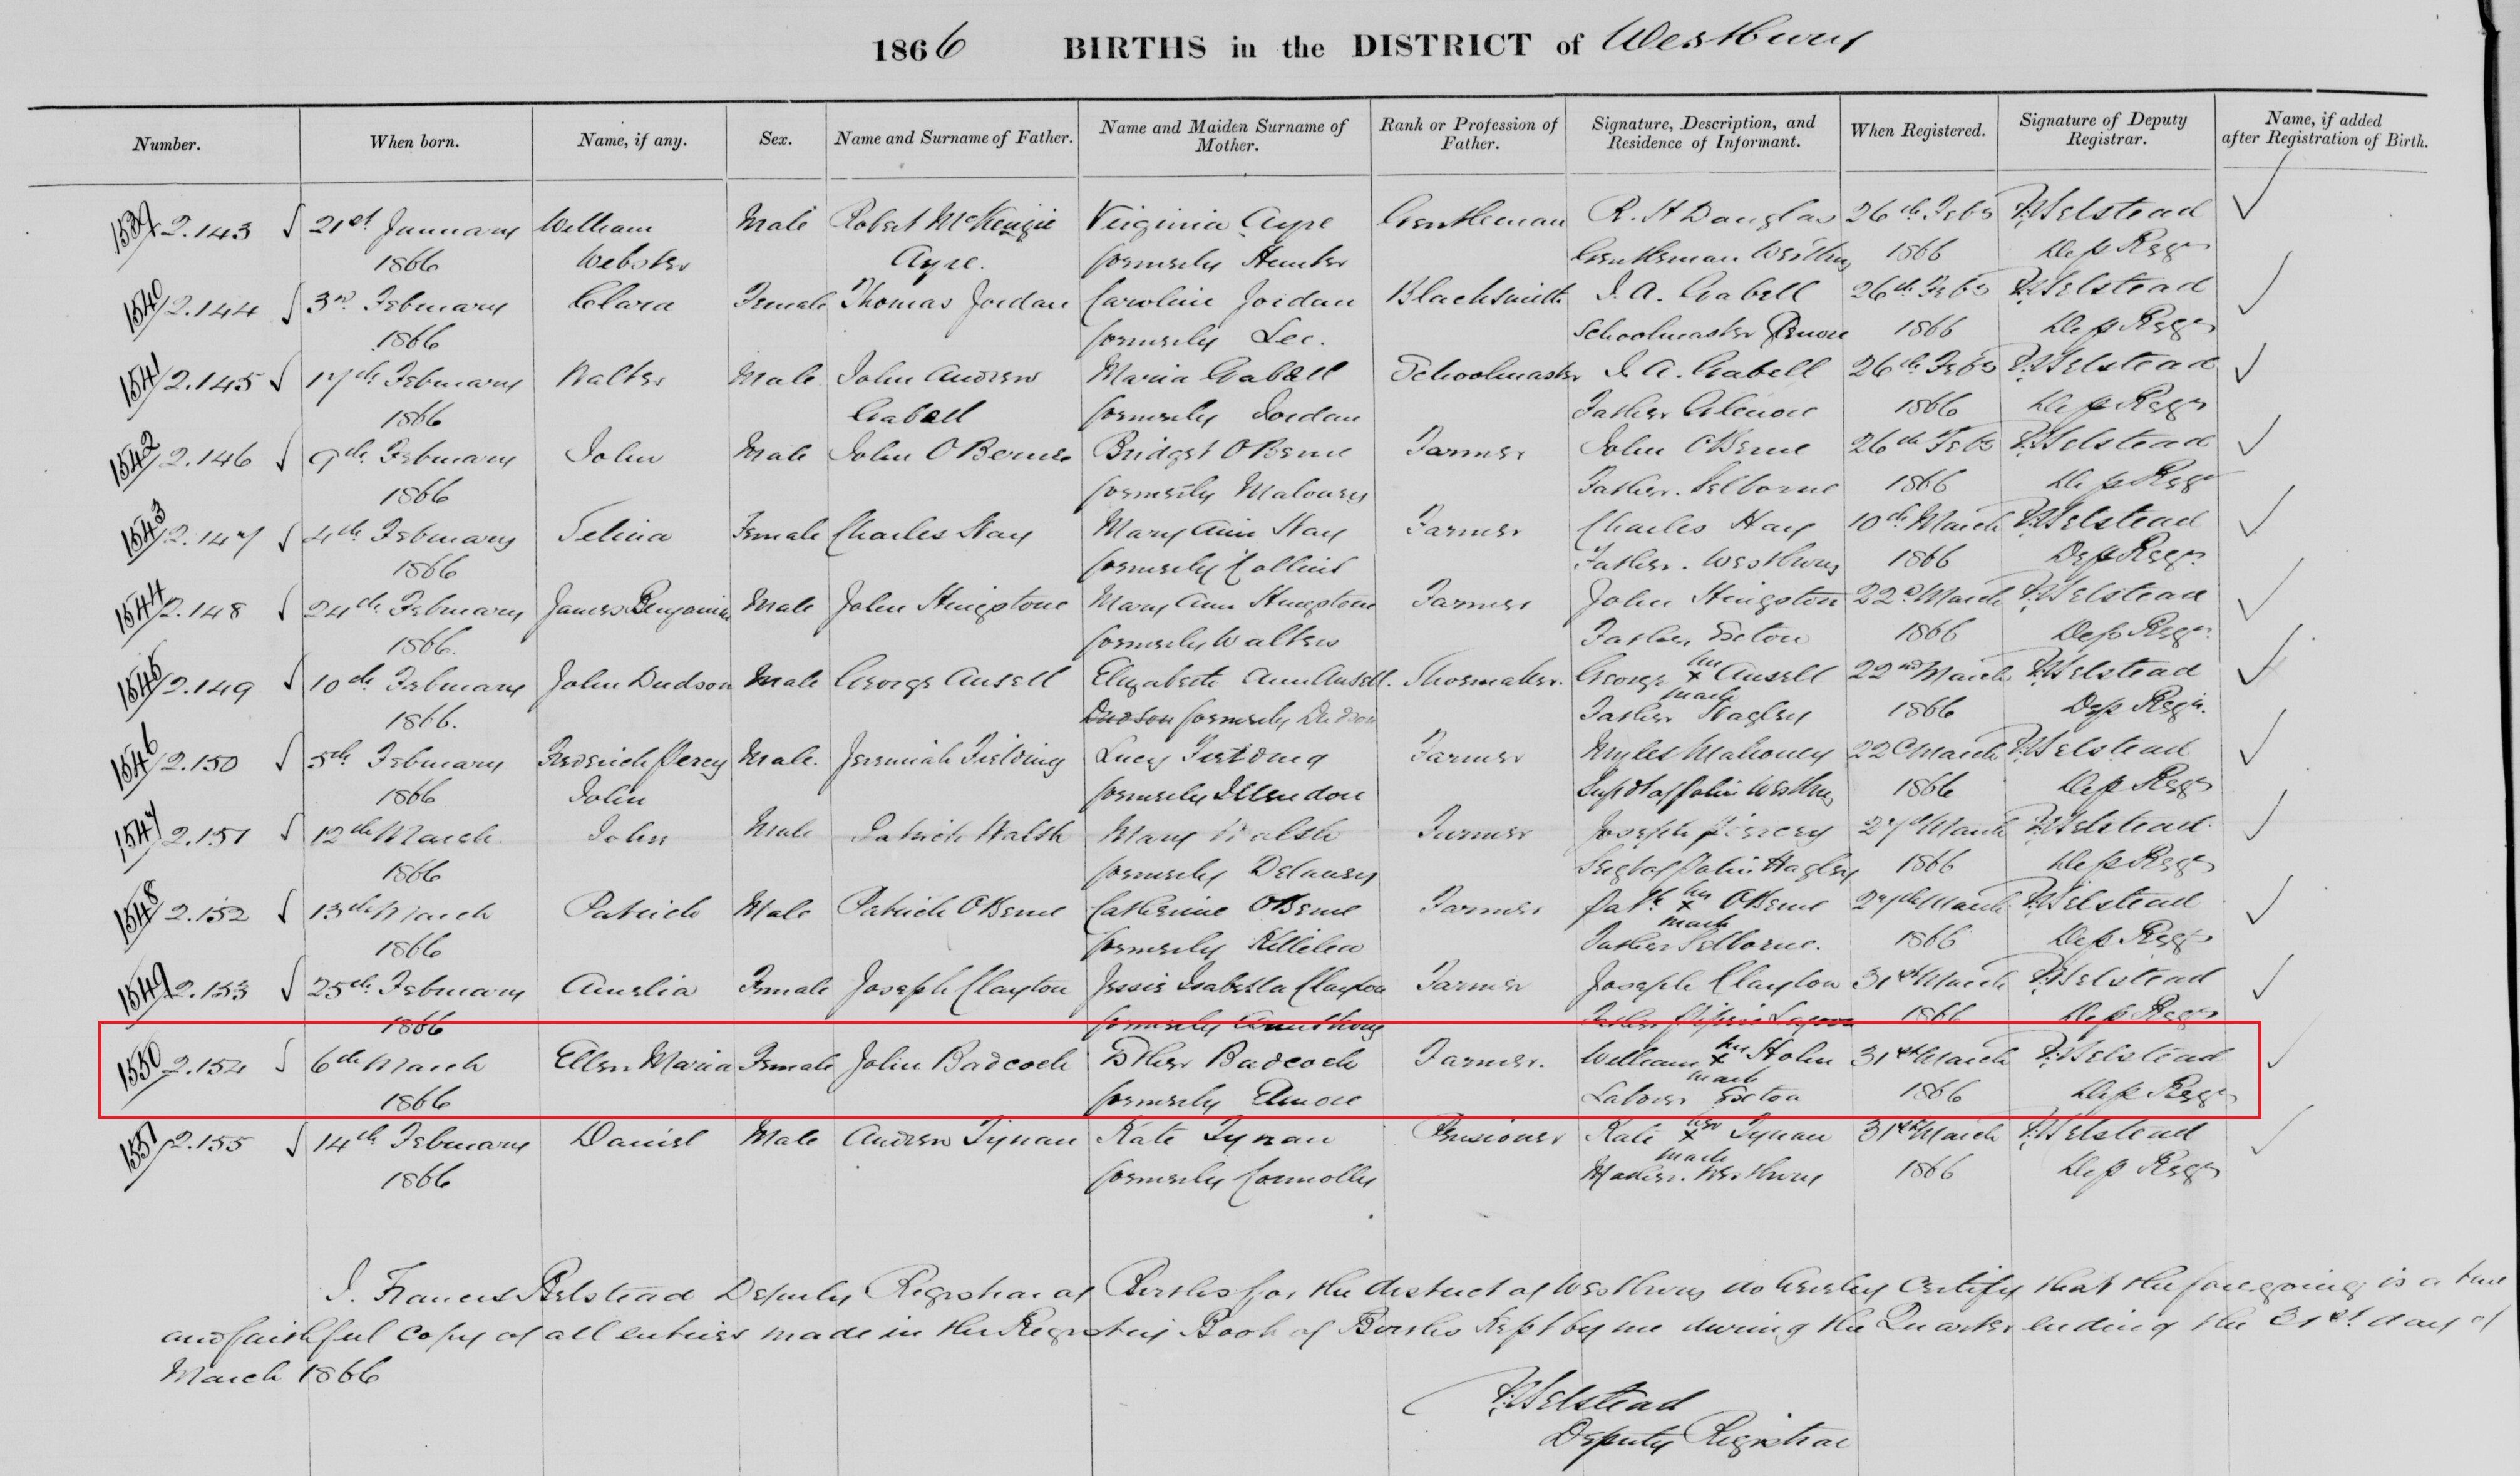 1866 BIRTHS in the DISTRICT of Westbury
Number. When born. Name, if any. Sex. Name and Surname of Father. Name and Maiden Surname of Mother. Rank or Profession of Father. Signature, Description, and Residence of Informant. When Registered. Signature of Deputy Registrar. Name, if added after Registration of Birth.
1539 2.143 21st January William Male Robert McKenzie Virginia Ayre Gentleman R. H Douglas 26th Feby F. Belstead
1866 Webster Ayre. formerly Hunter Gentleman Westbury 1866 Dep Regr
1540 2.144 3rd February Clara Female Thomas Jordan Caroline Jordan Blacksmith J. A. Gabell 26th Feby F. Belstead
1866 formerly Lee. Schoolmaster 1866 Dep Regr
1541 2.145 17th February Walter Male John Andrew Maria Gabell Schoolmaster J. A. Gabell 26th Feby F. Belstead
1866 Gabell formerly Jordan Father Glenore 1866 Dep Regr
1542 2.146 9th February John Male John O'Berne Bridget O'Berne Farmer John O'Berne 26th Feby F. Belstead
1866 formerly Maloney Father. Selborne 1866 Dep Regr
1543 2.147 4th February Selina Female Charles Hay Mary Ann Hay Farmer Charles Hay 10th March F. Belstead
1866 formerly Collins Father. Westbury 1866 Dep Regr.
1544 2.148 24th February James Benjamin Male John Kingstone Mary Ann Kingstone Farmer John Kingston 22d March F. Belstead
1866. formerly Walters Father Exton 1866 Dep Regr.
1545 2.149 10th February John Dudson Male George Ansell Elizabeth Ann Ansell. Shoemaker. George his x mark Ansell 22nd March F. Belstead
1866. Dudson formerly Dudson Father Hagley 1866 Dep Regr.
1546 2.150 5th February Frederick Percy Male. Jeremiah Fielding Lucy Fielding Farmer Myles Mahoney 22d March F. Belstead
1866 John formerly Supdt of Police Westbury 1866 Dep Regr
1547 2.151 12th March John Male Patrick Walsh Mary Walsh Farmer Joseph 27th March F. Belstead
1866 formerly Delaney Police Hagley 1866 Dep Regr
1548 2.152 13th March Patrick Male Patrick O'Berne Catherine O'Berne Farmer Patk his x mark O'Berne 27th March F. Belstead
1866 formerly Killilea Father Selborne. 1866 Dep Regr
1549 2.153 25th February Amelia Female Joseph Clayton Jessie Isabella Clayton Farmer Joseph Clayton 31st March F. Belstead
1866 formerly Armstrong Father Lagoon 1866 Dep Regr
1550 2.154 6th March Ellen Maria Female John Badcock Esther Badcock Farmer. William his x mark Holm 31st March F. Belstead
1866 formerly Elmore Labourer Exton 1866 Dep Regr
1551 2.155 14th February Daniel Male Andrew Tynan Kate Tynan Pensioner Kate her x mark Tynan 31st March F. Belstead
1866 formerly Connolly Mother. Westbury 1866 Dep Regr
I. Francis Belstead Deputy Registrar of Births for the district of Westbury do hereby certify that the foregoing is a true
and faithful copy of all entries made in the Registry Book of Births kept by me during the Quarter ending the 31st day of
March 1866
F. Belstead
Deputy Registrar